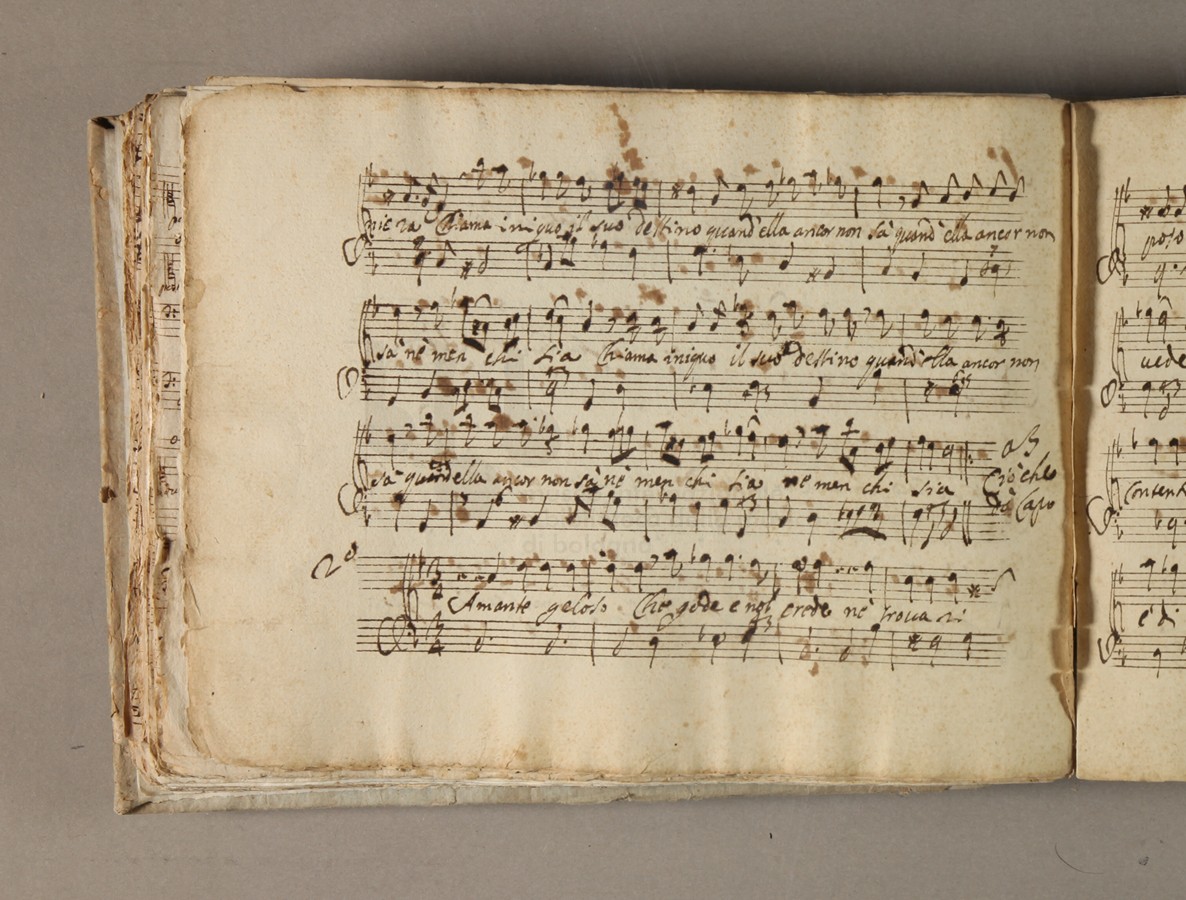 niera Chiama iniquo il suo destino quand'ella ancor non sà quand' ella ancor non
sà nè men chi sia Chiama iniquo il suo destino quand' ella ancor non
sà quand'ella ancor non sà nè men chi sia nè men chi sia
Ciò che
Da Capo
2a
3/4
Amante geloso Che gode e nol crede nè troua si
3/4
poso
uede
Content
è di